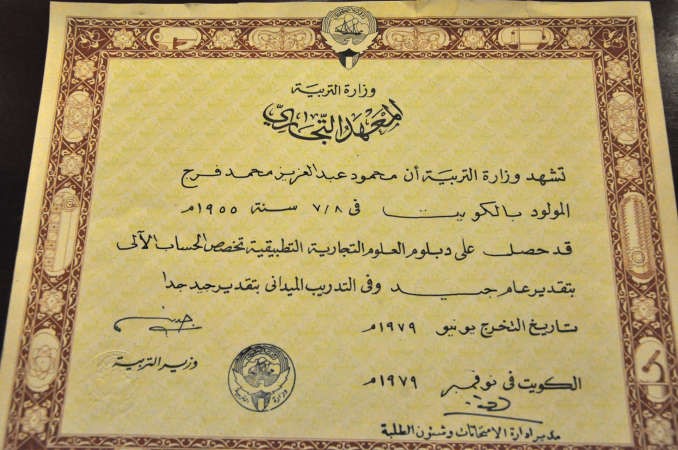 وزارة التربية
المعهد التجاري
تشهد وزارة التربية أن محمود عبد العزيز محمد فرج
المولود بالكويت فى ٧/٨ سنة ١٩٥٥م
قد حصل على دبلوم العلوم التجارية التطبيقية تخصص الحساب الآلى
بتقدير عام جيد وفى التدريب الميدانى بتقدير جيد جدا
تاريخ التخرج يونيو ١٩٧٩م
وزير التربية
الكويت فى نوفمبر ١٩٧٩م
مدير ادارة الامتحانات وشئون الطلبة